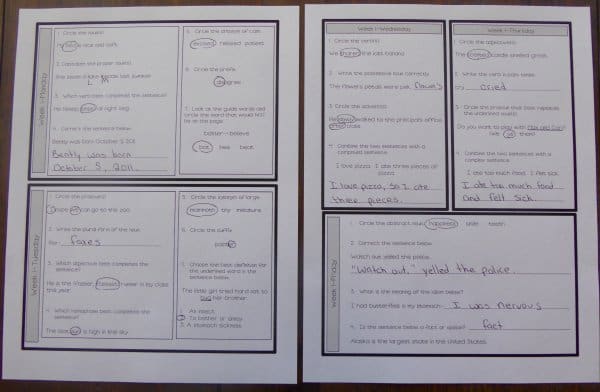 Week 1-Monday
1. Circle the noun(s).
2. Capitalize the proper nouns.
L M
3. Which verb best completes the sentence?
He sleeps at night.
4. Correct the sentence below.
Bently was born October 5 2011
Bently was born
October 5, 2011.
5. Circle the antonym of calm.
stressed relaxed patient
6. Circle the prefix.
disagree
7. Look at the guide words and
circle the word that would not
be on the page.
batter - believe
bat bee beat
Week 1-Tuesday
1. Circle the pronoun.
can go to the zoo.
2. Write the plural form of the noun.
foxes
3. Which adjective best completes the
sentence?
He is the runner in my class
this year.
4. Which homophone best completes the
sentence?
The is high in the sky.
5. Circle the synonym of large.
mammoth tiny miniature
6. Circle the suffix.
7. Choose the best definition for
the underlined word in the
sentence below.
The little girl tried hard not to
bug her brother.
An insect
To bother or annoy
3. A stomach sickness
Week 1-Wednesday
1. Circle the verb(s).
We shared the last banana.
2. Write the possessive noun correctly.
The flowers petals were pink. flower's
3. Circle the adverb(s).
He slowly walked to the principal's office
after class.
4. Combine the two sentences with a
compound sentence.
I love pizza. I ate three pieces of
pizza.
I love pizza, so I ate
three pieces.
Week 1-Thursday
1. Circle the adjective(s).
The candle smelled great.
2. Write the verb in past tense.
cried
3. Circle the pronoun that best replaces
the underlined noun(s).
Do you want to play with Max and Sam?
them?
4. Combine the two sentences with a
complex sentence.
I ate too much food. I felt sick.
I ate too much food
and felt sick.
Week 1-Friday
1. Circle the abstract noun. happiness teeth
2. Correct the sentence below.
Watch out yelled the police.
"Watch out," yelled the police.
3. What is the meaning of the idiom below?
I had butterflies in my stomach. I was nervous
4. Is the sentence below a fact or opinion? fact
Alaska is the largest state in the United States.